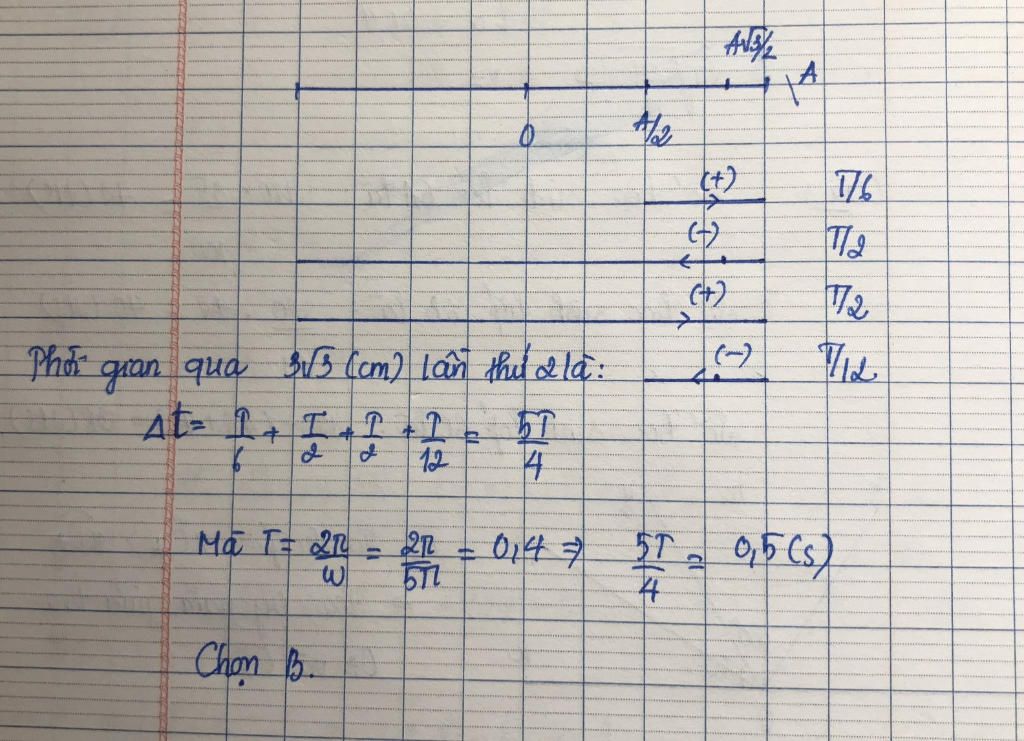 A√3/2
A
O
A/2
(+) T/6
(-) T/2
(+) T/2
(-) T/12
Thời gian qua 3√3 (cm) lần thứ 2 là:
Δt = T/6 + T/2 + T/2 + T/12 = 5T/4
Mà T = 2π/ω = 2π/5π = 0,4 ⇒ 5T/4 = 0,5 (s)
Chọn B.